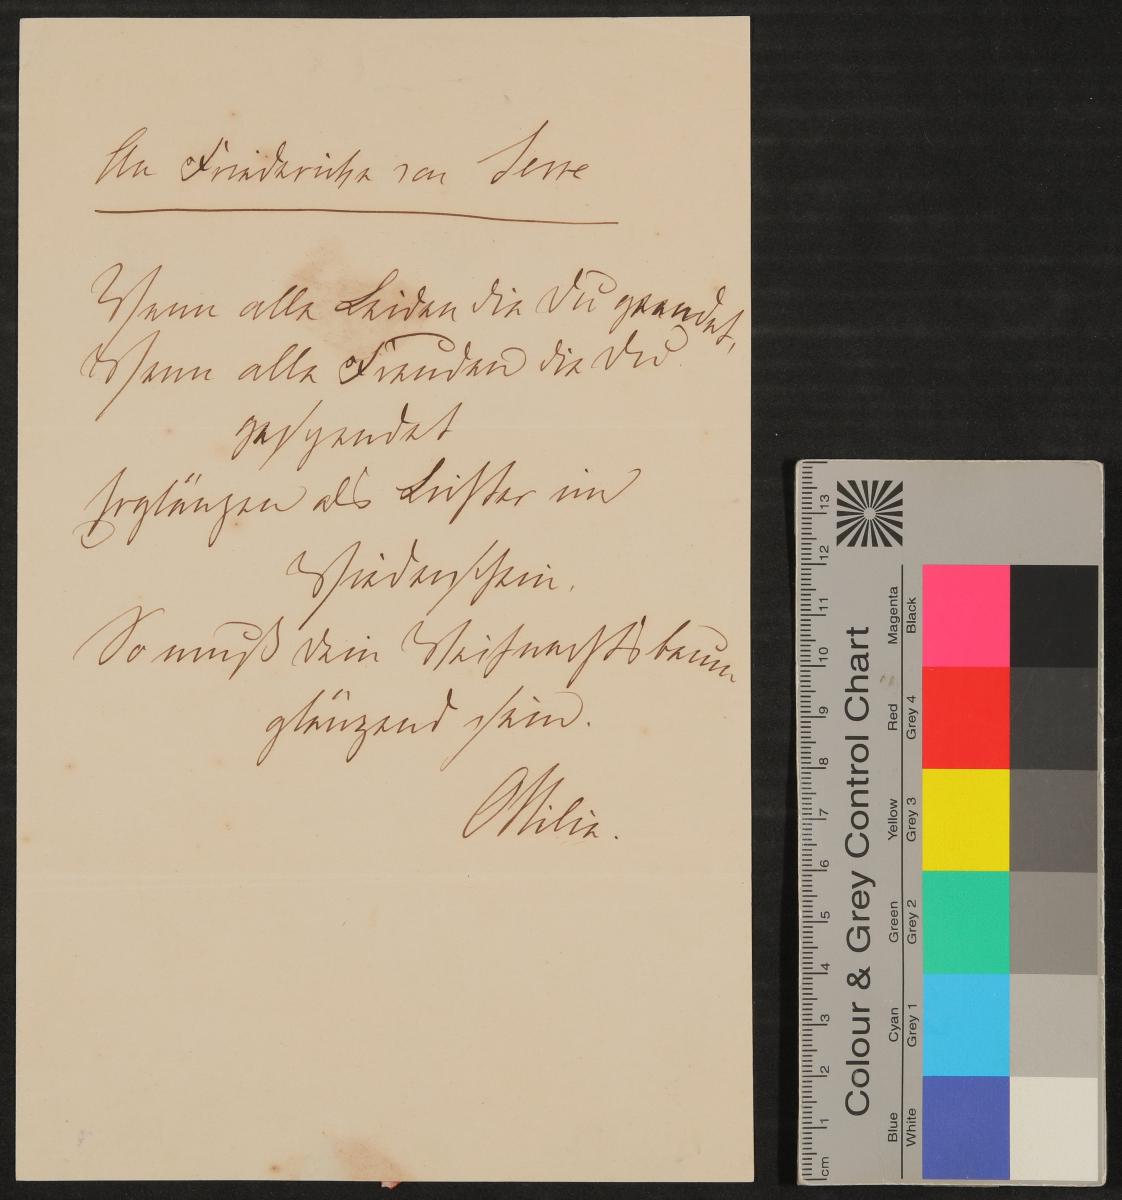 An Friederike von Serre
Wenn alle Leiden die Du geendet,
Wenn alle Freuden die Du
gespendet
Erglänzen als Lichter im
Wiederschein,
So muß dein Weihnachtsbaum
glänzend sein.
Ottilie.
Colour & Grey Control Chart
Blue Cyan Green Yellow Red Magenta
White Grey 1 Grey 2 Grey 3 Grey 4 Black
cm 1 2 3 4 5 6 7 8 9 10 11 12 13